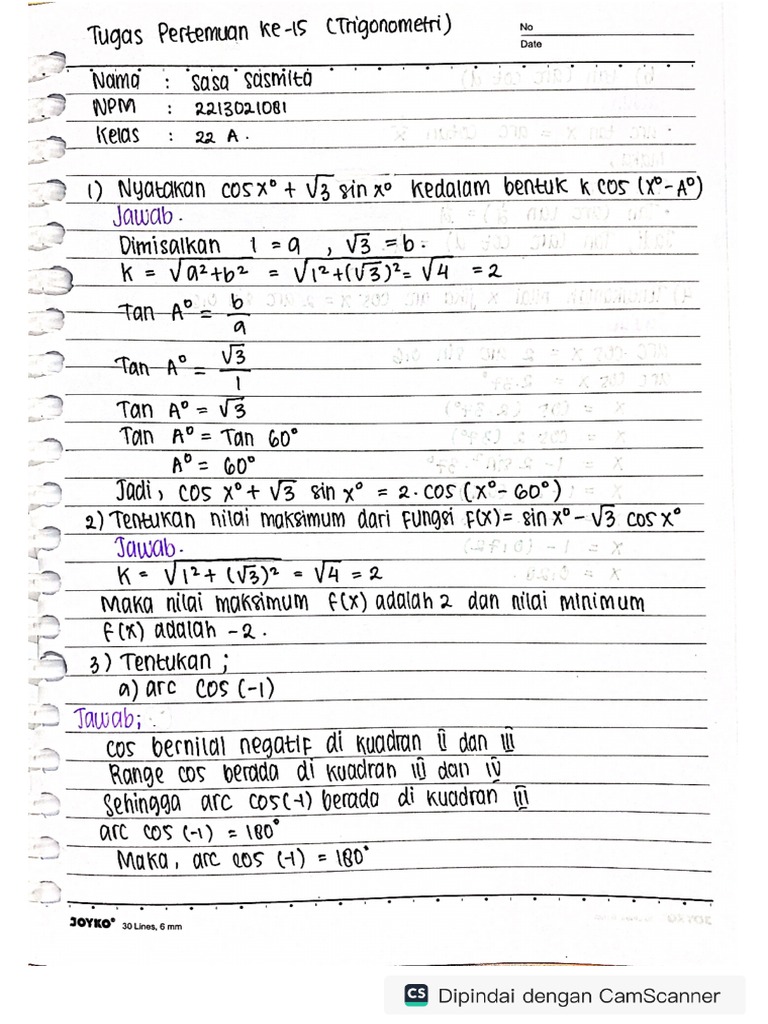 Tugas Pertemuan Ke-15 (Trigonometri)
No
Date
Nama : Sasa Sasmita
NPM : 2213021081
Kelas : 22 A.
1) Nyatakan cos x° + √3 sin x° kedalam bentuk k cos (x° - A°)
Jawab.
Dimisalkan 1 = a , √3 = b.
K = √a²+b² = √1²+(√3)² = √4 = 2
Tan A° = b/a
Tan A° = √3/1
Tan A° = √3
Tan A° = Tan 60°
A° = 60°
Jadi, cos x° + √3 sin x° = 2. cos (x° - 60°)
2) Tentukan nilai maksimum dari fungsi f(x) = sin x° - √3 cos x°
Jawab.
K = √1² + (√3)² = √4 = 2
Maka nilai maksimum f(x) adalah 2 dan nilai minimum
f(x) adalah -2.
3) Tentukan ;
a) arc cos (-1)
Jawab;
cos bernilai negatif di kuadran II dan III
Range cos berada di kuadran III dan IV
Sehingga arc cos(-1) berada di kuadran III
arc cos (-1) = 180°
Maka, arc cos (-1) = 180°
JOYKO® 30 Lines, 6 mm
CS Dipindai dengan CamScanner